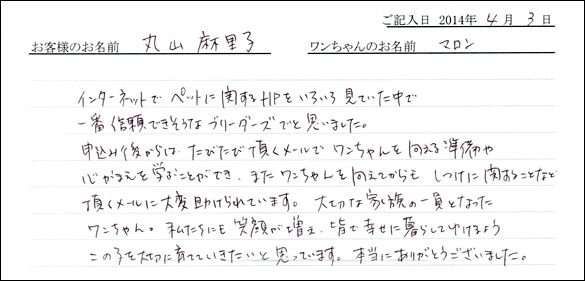 ご記入日 2014年 4月 3日
お客様のお名前 丸山 麻里子 ワンちゃんのお名前 マロン
インターネットで ペットに関するHPをいろいろ見ていた中で
一番信頼できそうなブリーダーズでと思いました。
申込み後からは たびたび頂くメールで ワンちゃんを向える準備や
心がまえを学ぶことができ、また ワンちゃんを向えてからも しつけに関することなど
頂くメールに大変助けられています。 大切な家族の一員となった
ワンちゃん。 私たちにも 笑顔が増え、皆で幸せに暮らしてゆけるよう
この子を大切に育てていきたいと思っています。本当にありがとうございました。